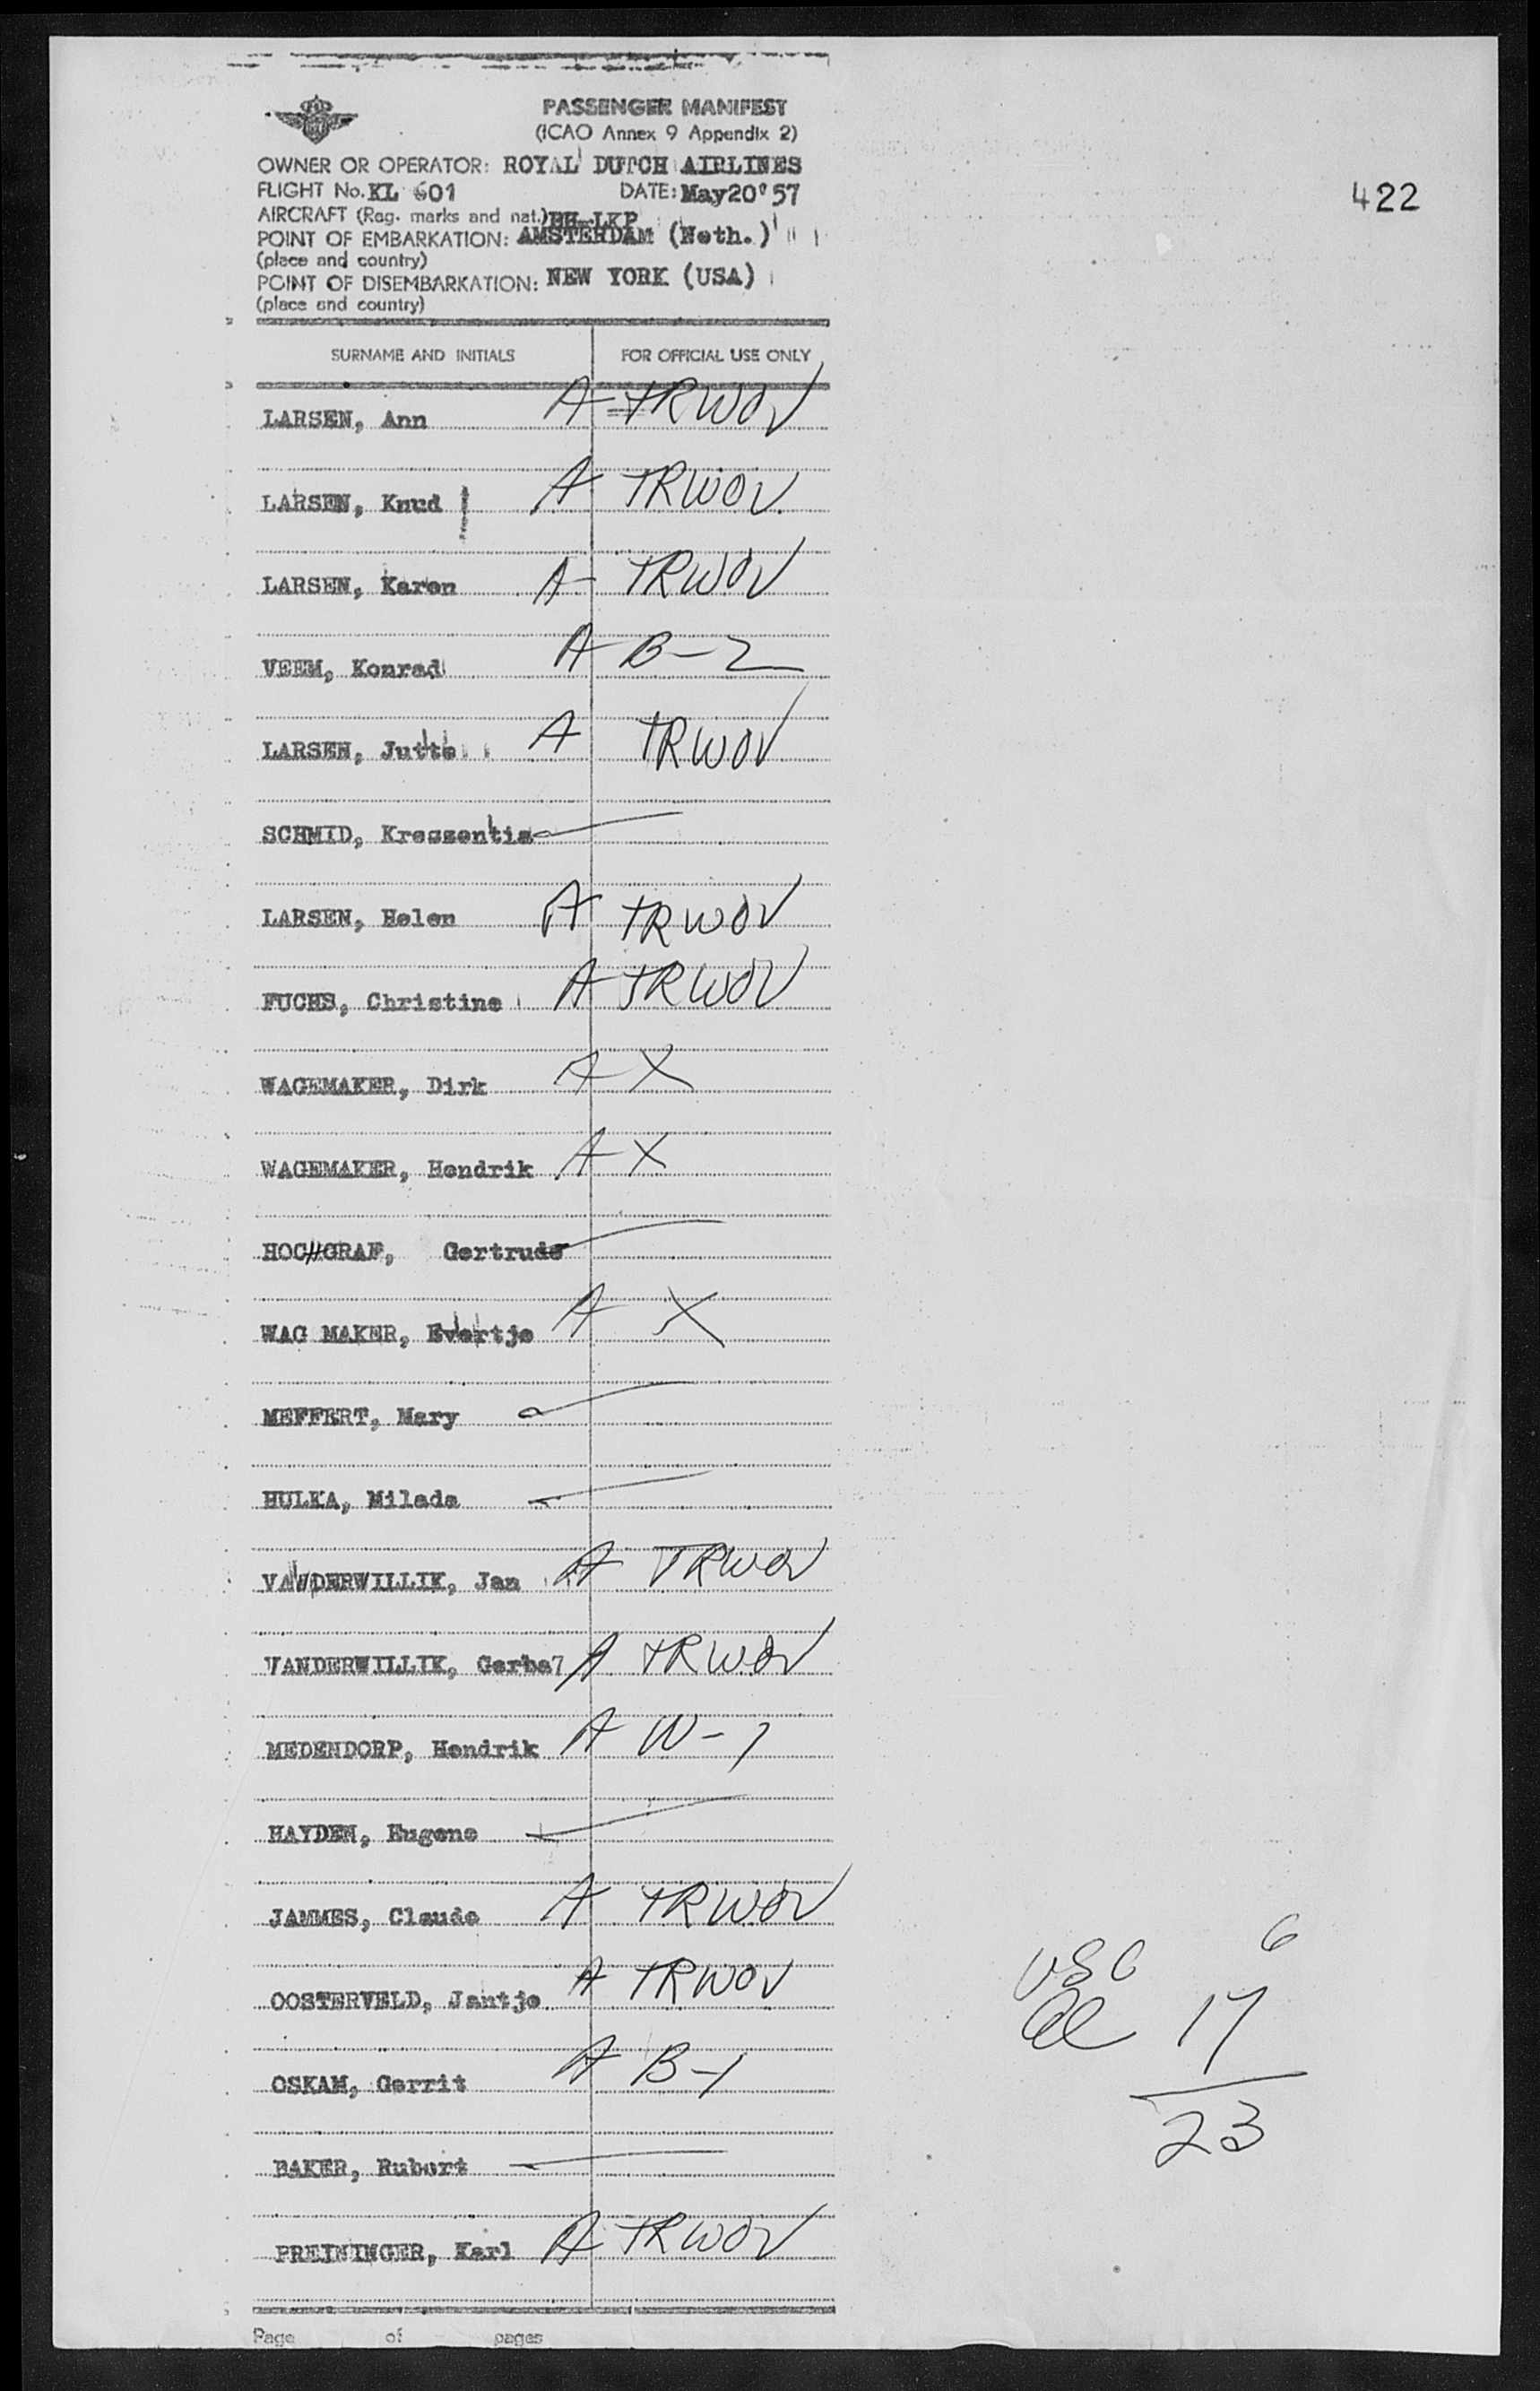 PASSENGER MANIFEST
(ICAO Annex 9 Appendix 2)
OWNER OR OPERATOR: ROYAL DUTCH AIRLINES
FLIGHT No. KL 601 DATE: May20'57
422
AIRCRAFT (Reg. marks and nat.) PH-LKP
POINT OF EMBARKATION: AMSTERDAM (Neth.)
(place and country)
POINT OF DISEMBARKATION: NEW YORK (USA)
(place and country)
SURNAME AND INITIALS FOR OFFICIAL USE ONLY
LARSEN, Ann A TRWOV
LARSEN, Knud A TRWOV
LARSEN, Karen A TRWOV
VEEM, Konrad A B-2
LARSEN, Jutta A TRWOV
SCHMID, Kreszentia
LARSEN, Helen A TRWOV
FUCHS, Christine A TRWOV
WAGEMAKER, Dirk A X
WAGEMAKER, Hendrik A X
HOCHGRAF, Gertrude
WAG MAKER, Evertje A X
MEFFERT, Mary
HULKA, Milada
VANDERWILLIK, Jan A TRWOV
VANDERWILLIK, A TRWOV
MEDENDORP, Hendrik A W-1
HAYDEN, Eugene
JAMMES, Claude A TRWOV
OOSTERVELD, Jantje A TRWOV
OSKAM, Gerrit A B-1
BAKER, Rubert
PREININGER, Karl A TRWOV
USC 6
17
23
Page of pages